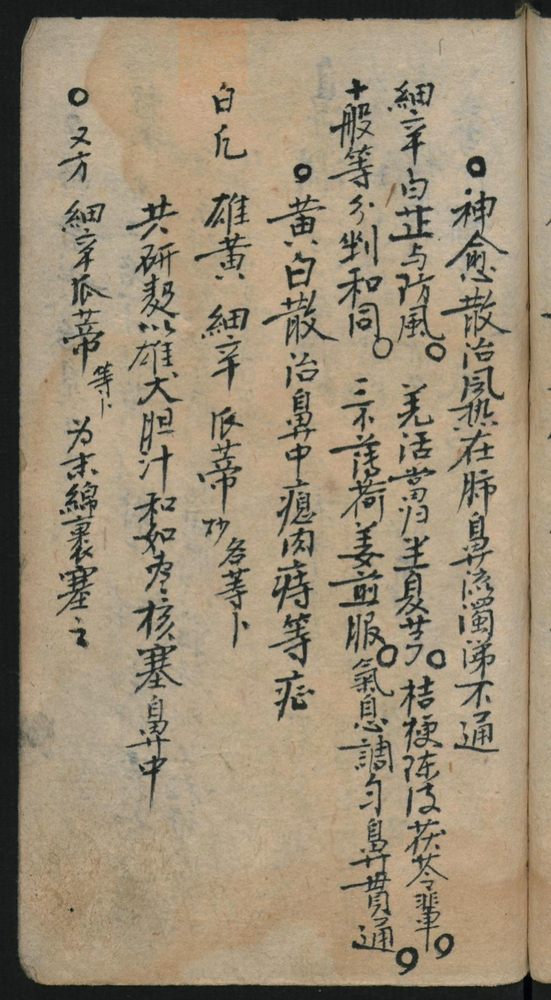 ○神愈散治風热在肺鼻流濁涕不通
細辛白芷与防風。羌活當归半夏芎。桔梗陈皮茯苓輩。
十般等分剉和同。三不薄荷姜煎服。氣息調匀鼻貫通。
○黃白散治鼻中瘜肉痔等症
白凡 雄黃 細辛 瓜蒂炒 各等卜
共研麸以雄犬胆汁和如枣核塞鼻中
○又方 細辛瓜蒂等卜 为末綿裹塞之